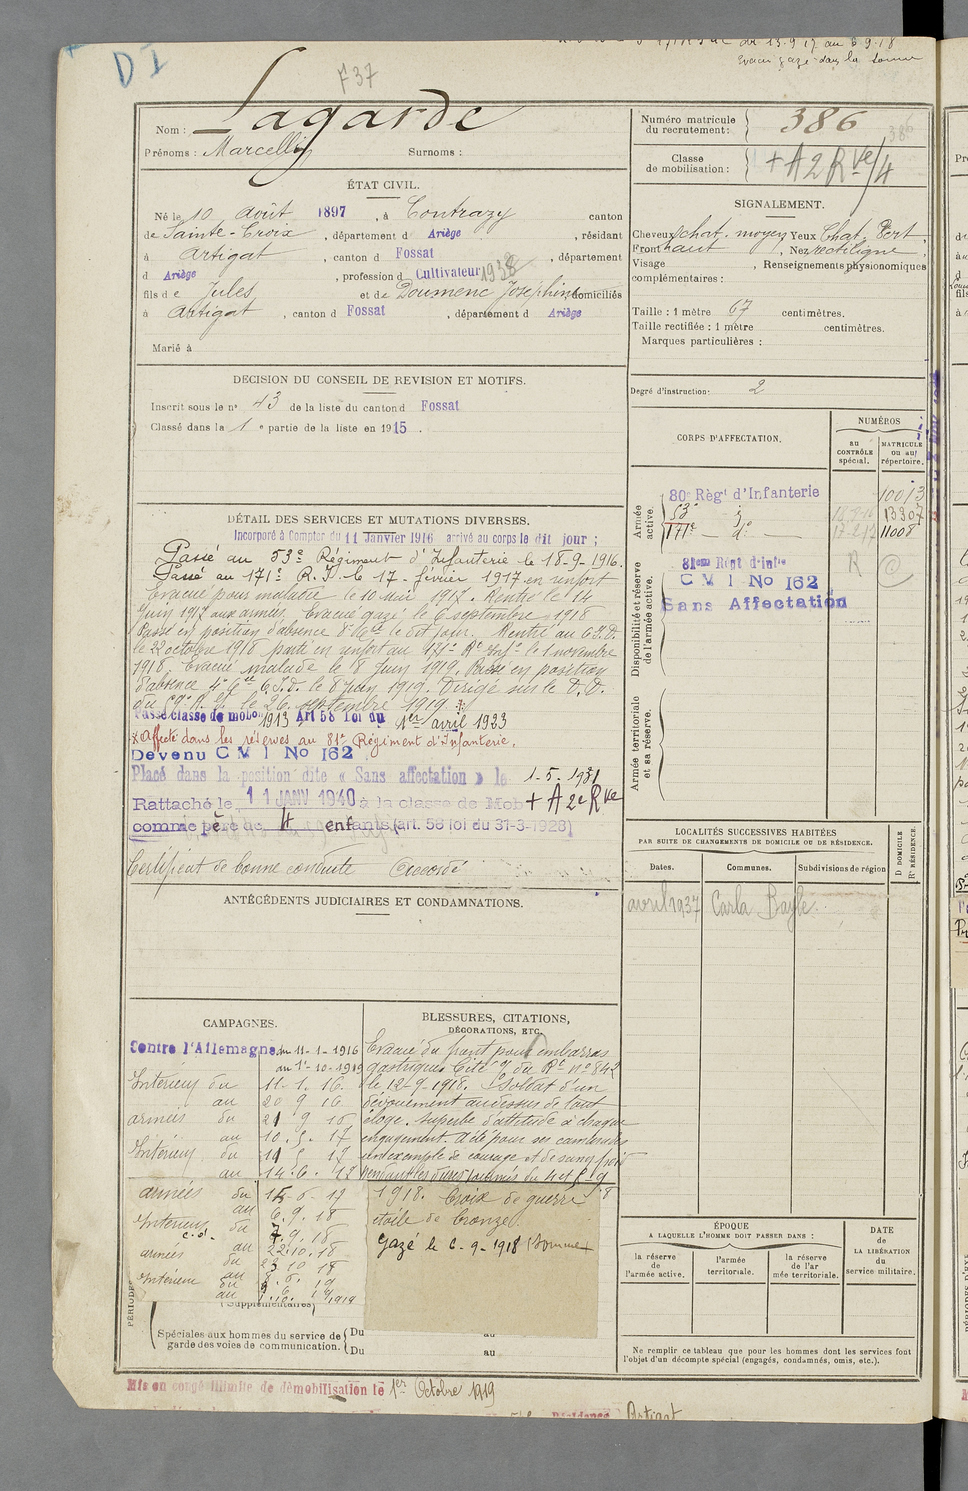 D I
F 37
du 13.9.17 au 6.9.18
Evacué gazé dans la somme
Nom : Lagarde
Prénoms : Marcellin Surnoms :
Numéro matricule du recrutement : 386
386
Classe de mobilisation : + A 2 Rve/4
ÉTAT CIVIL.
Né le 10 août 1897, à Contrazy canton
de Sainte-Croix, département d Ariège, résidant
à Artigat, canton d Fossat, département
d Ariège, profession d Cultivateur 1938
fils de Jules et de Doumenc Joséphine domiciliés
à Artigat, canton d Fossat, département d Ariège
Marié à
SIGNALEMENT.
Cheveux chat. moyen Yeux Chat. Vert
Front haut, Nez rectiligne
Visage , Renseignements physionomiques
complémentaires :
Taille : 1 mètre 67 centimètres.
Taille rectifiée : 1 mètre centimètres.
Marques particulières :
Degré d'instruction : 2
DECISION DU CONSEIL DE REVISION ET MOTIFS.
Inscrit sous le n° 43 de la liste du canton d Fossat
Classé dans la 1e partie de la liste en 1915.
DÉTAIL DES SERVICES ET MUTATIONS DIVERSES.
Incorporé à Compter du 11 Janvier 1916 arrivé au corps le dit jour ;
Passé au 53e Régiment d'Infanterie le 18-9-1916.
Passé au 171e R.I. le 17 février 1917 en renfort
Evacué pour maladie le 10 mai 1917. Rentré le 14
Juin 1917 aux armées. Evacué gazé le 6 septembre 1918
Passé en position d'absence le dit jour. Rentré au C.I.D.
le 22 octobre 1918 parti en renfort au 171e Rt Infie le 1 novembre
1918. Evacué malade le 8 Juin 1919. Passé en position
d'absence C.I.D. le 8 juin 1919. Dirigé sur le D.D.
du 59e R.I. le 26 septembre 1919.
Passé classe de mobon 1913 Art 58 Loi du 1er avril 1923
x Affecté dans les réserves au 81e Régiment d'Infanterie.
Devenu C M I No 162
Placé dans la position dite « Sans affectation » le 1-5-1931
Rattaché le 11 JANV 1940 à la classe de Mob + A 2e Rve
comme père de 4 enfants (art. 58 loi du 31-3-1928)
Certificat de bonne conduite Accordé
CORPS D'AFFECTATION.
NUMÉROS
au CONTRÔLE spécial.
MATRICULE ou au répertoire.
Armée active.
80e Régt d'Infanterie 10013
53e d° 13307
171e d° 11008
Disponibilité et réserve de l'armée active.
81eme Régt d'Infie R C
C M I No 162
Sans Affectation
Armée territoriale et sa réserve.
LOCALITÉS SUCCESSIVES HABITÉES
PAR SUITE DE CHANGEMENTS DE DOMICILE OU DE RÉSIDENCE.
Dates. Communes. Subdivisions de région D DOMICILE Rt RÉSIDENCE.
avril 1937 Carla Bayle.
ANTÉCÉDENTS JUDICIAIRES ET CONDAMNATIONS.
CAMPAGNES.
Contre l'Allemagne du 11-1-1916
au 1er-10-1919
Intérieur du 11-1-16
au 20 9 16
armées du 21 9 16
au 10.5.17
Intérieur du 11 5 17
au 14.6.17
armées du 15-6-17
au 6.9.18
Intérieur c.d. du 7.9.18
au 22.10.18
armées du 23 10 18
au 8.6.19
Intérieur du 9 6 19
au 1.10.1919
BLESSURES, CITATIONS,
DÉCORATIONS, ETC.
Evacué du front pour embarras
gastrique Cité O/ du Rt n° 842
le 12-9-1918. Soldat d'un
dévouement audessus de tout
éloge. Superbe d'attitude à chaque
engagement. A été pour ses camarades
un exemple de courage et de sang froid
pendant les dures journées du 4 et 5-9
1918. Croix de guerre
étoile de bronze.
Gazé le 6-9-1918 (Somme)
PÉRIODES
(Supplémentaires)
Spéciales aux hommes du service de garde des voies de communication.
Du au
Du au
ÉPOQUE
A LAQUELLE L'HOMME DOIT PASSER DANS :
la réserve de l'armée active.
l'armée territoriale.
la réserve de l'armée territoriale.
DATE DE LA LIBÉRATION du service militaire.
Ne remplir ce tableau que pour les hommes dont les services font
l'objet d'un décompte spécial (engagés, condamnés, omis, etc.).
Mis en congé illimité de démobilisation le 1er Octobre 1919
Résidence Artigat